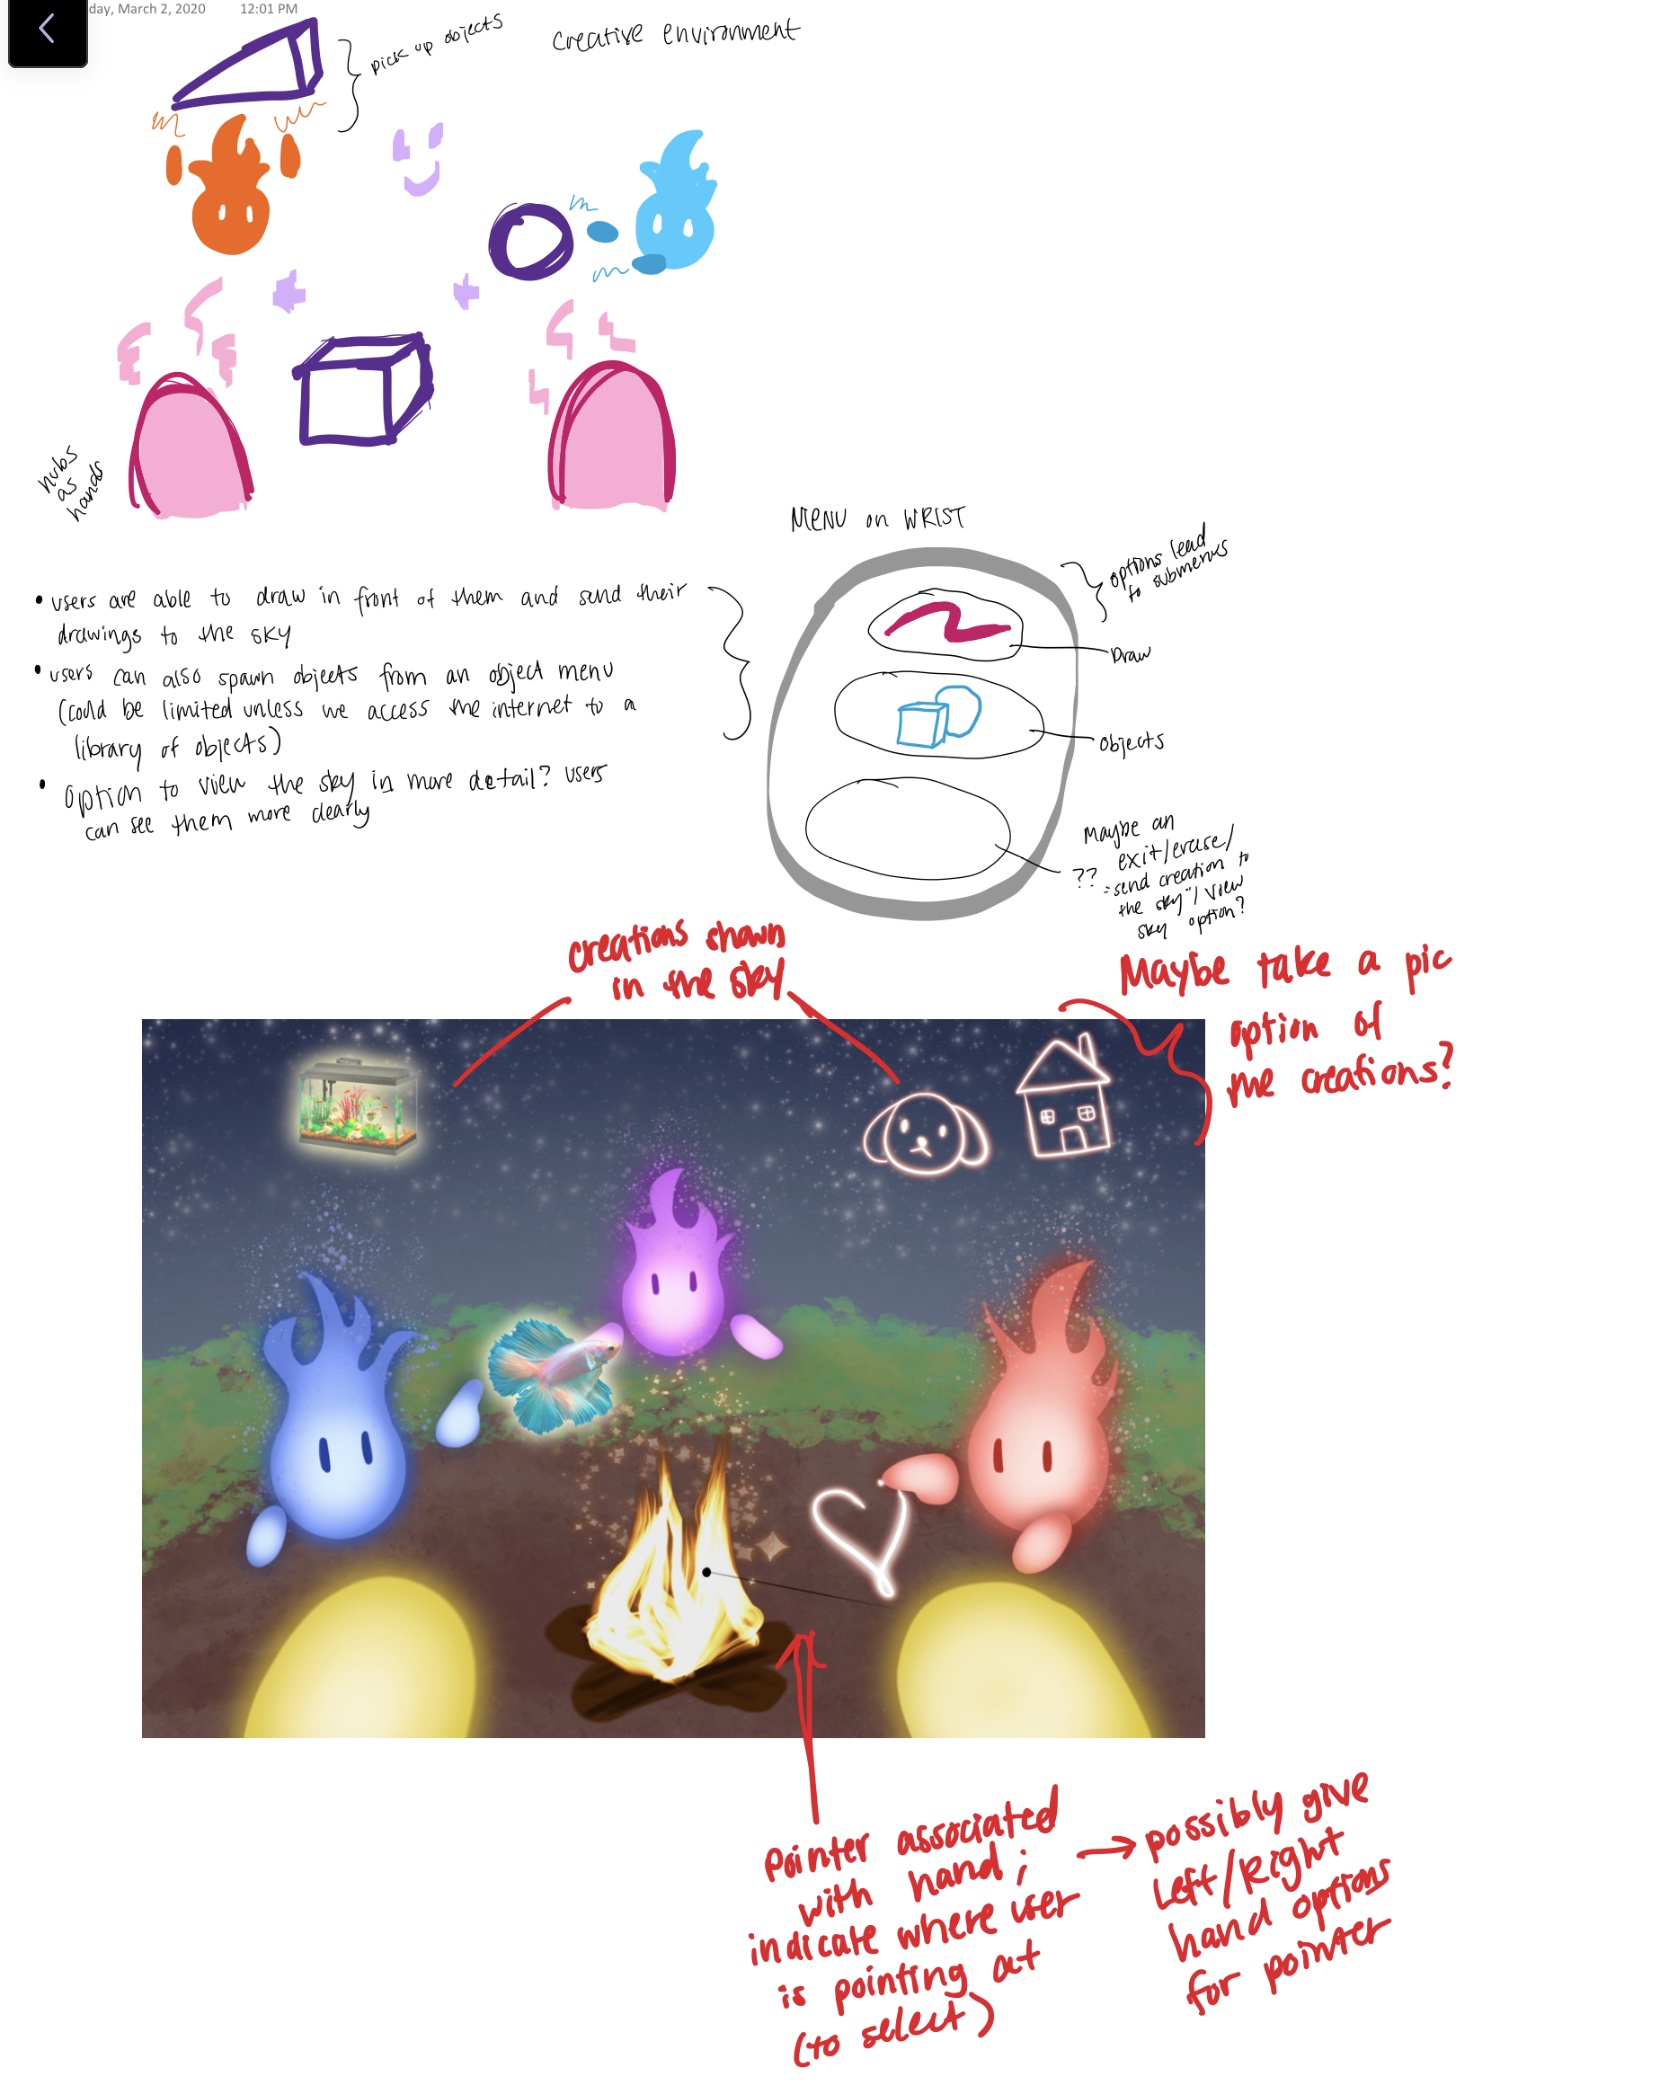 day, March 2, 2020 12:01 PM
pick up objects
creative environment
nubs
as
hands
MENU on WRIST
options lead
to submenus
• users are able to draw in front of them and send their
drawings to the sky
• users can also spawn objects from an object menu
(could be limited unless we access the internet to a
library of objects)
• option to view the sky in more detail? users
can see them more clearly
Draw
objects
Maybe an
exit/erase/
?? "send creation to
the sky"/view
sky option?
creations shown
in the sky
Maybe take a pic
option of
the creations?
Pointer associated
with hand;
indicate where user
is pointing at
(to select)
→ possibly give
Left/Right
hand options
for pointer